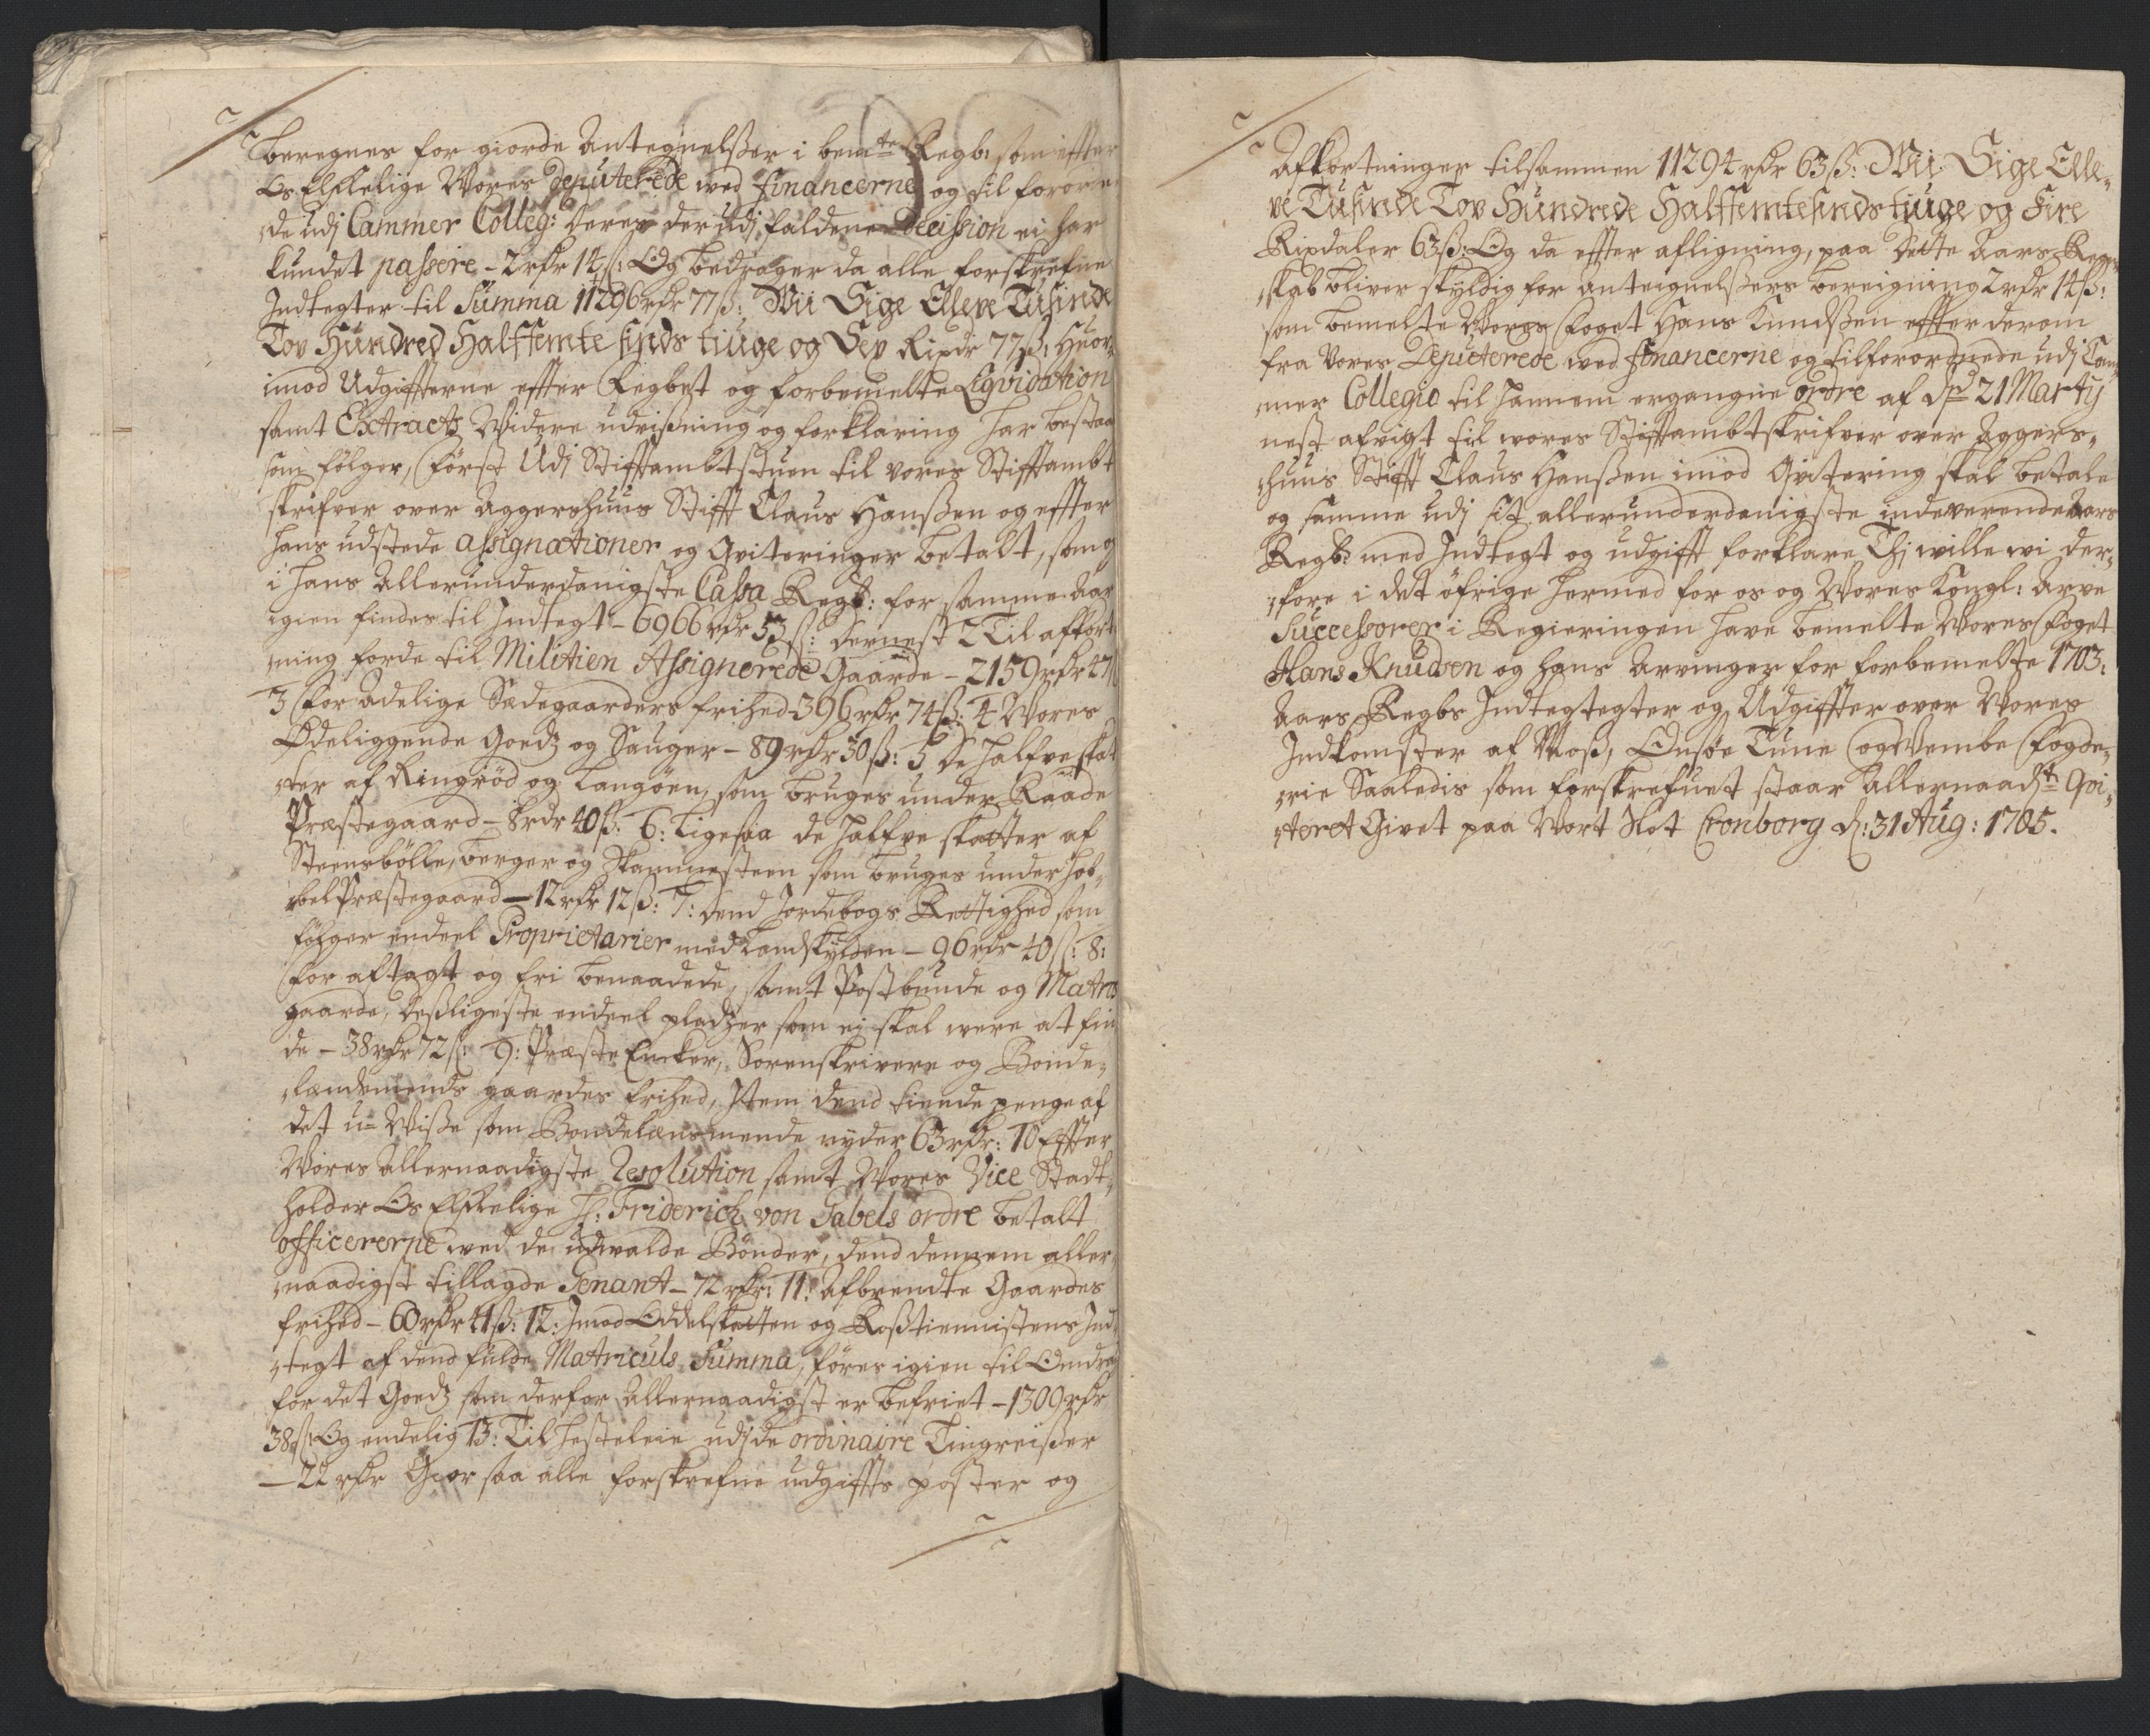 beregnes for giorde Antegnelßer i bemte Regb: som effter
Os Elskelige Vores Deputerede ved Financerne og til forord
„de udj Cammer Colleg: deres derudj faldene Decission ei har
kundet passere – 2 rdr 14ß: Og bedrager da alle forskrefne
Indtegter til Summa 11296 rdr 77ß: Wii Sige Elleve Tusinde
Tov Hundred Halffemte sinds tiuge og Sex Rixdr 77ß: Huor„
imod Udgiffterne effter Regbet og forbemelte Liqvidation
samt Extracts Widere udvißning og forklaring har bestaa
som følger, Først Udj Stifftambtstuen til vores Stifftambt
skrifver over Aggershuus Stifft Claus Hanßen og effter
hans udstede assignationer og Qviteringer betalt, som og
i hans Allerunderdanigste Cassa Regb: for samme Aar
igien findes til Indtegt – 6966 rdr 53ß: Dernest 2 Til afkort
„ning forde til Militien Assignerede Gaarde – 2159 rdr 47ß
3 For Adelige Sædegaarders frihed – 396 rdr 74ß: 4 Vores
Ødeliggende Goedz og Sauger – 89 rdr 30ß: 5 De halfve skat
„ter af Ringrød og Langøen, som bruges under Raade
Præstegaard – 8 rdr 40ß: 6: Ligesaa de halfve skatter af
Steensbølle, Berger og Skammesteen som bruges under Hob„
„bel Præstegaard – 12 rdr 12ß: 7: dend Jordebogs Rettighed som
følger endeel Proprietarier med Landskylden – 96 rdr 40ß: 8:
For aftagt og fri benaadede, samt Postbunde og Matros
gaarde, deßligeste endeel pladzer som ej skal were at fin
de – 38 rdr 72ß: 9: Præste Encker, Sorenskrivere og Bonde„
„lændsmends gaardes frihed, Item dend tiende penge af
det u= Wiße som Bondelænsmende nyder 63 rdr: 10 Effter
Vores Allernaadigste Resolution samt Vores Vice Stadt„
holder Os Elskelige H: Friderich von Gabels ordre betalt
officererne ved de udvalde Bønder, dend dennem aller„
„naadigst tillagde Tenant – 72 rdr: 11: Afbrendte Gaardes
frihed – 60 rdr 41ß: 12: Imod Oddelskatten og Roßtiennistens Ind„
„tegt af dend fulde Matriculs Summa, føres igien til Omdrag
for det Goedz som derfor Allernaadigst er befriet – 1309 rdr
38ß: Og endelig 13: Til hesteleie udj de ordinaire Tingreißer
– 22 rdr Giør saa alle forskrefne udgiffts poster og
Afkortninger tilsammen 11294 rdr 63ß: Wii Sige Elle„
ve Tusinde Tov Hundrede Halffemtesinds tiuge og Fire
Rixdaler 63ß: Og da effter afligning, paa dette Aars Regen
„skab bliver skyldig for anteignelßers bereigning 2 rdr 14ß:
som bemelte Vores Foget Hans Knudßen effter derom
fra Vores Deputerede ved Financerne og tilforordnede udj Cam„
„mer Collegio til hannem ergangne ordre af Dd 21 Marty
nest afvigt til vores Stifftambtskrifver over Aggers„
„huus Stifft Claus Hanßen imod Qvitering skal betale
og samme udj sit allerunderdanigste indeverende Aars
Regb: med Indtegt og udgifft forklare Thj wille wi der„
„fore i det øfrige hermed for os og Vores Kongl: Arve
Successorer i Regieringen have bemelte Vores Foget
Hans Knudsen og hans Arvinger for forbemelte 1703:
Aars Regbs Indtegtegter og Udgiffter over Vores
Indkomster af Moß, Onsøe Tune og Vembe Fogde„
„rie Saaledis som forskrefuet staar Allernaadst Qvi„
„teret Givet paa Vort Slot Cronborg d: 31 Aug: 1705.